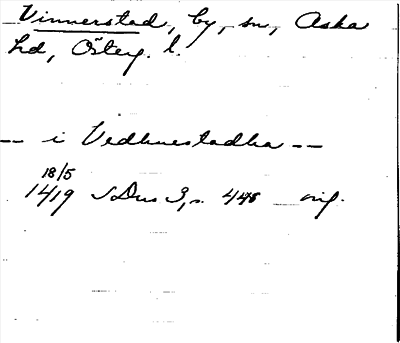 Vinnerstad, by, sn, Aska
hd, Österg. l.
-- i Vedhnestadha --
18/5
1419 SDns 3, s. 448 orig.